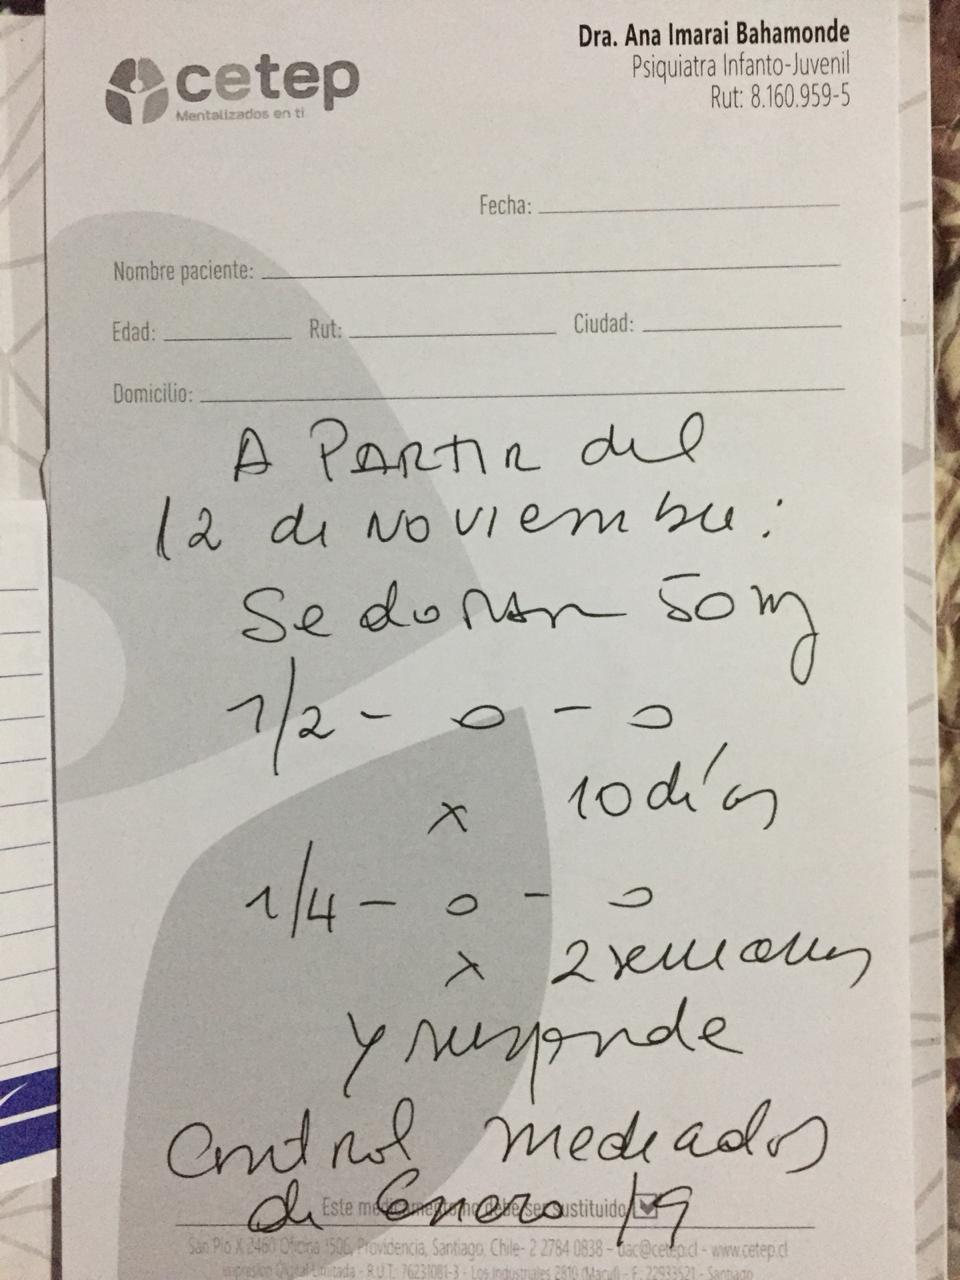 cetep
Mentalizados en ti
Dra. Ana Imarai Bahamonde
Psiquiatra Infanto-Juvenil
Rut: 8.160.959-5
Fecha:
Nombre paciente:
Edad: Rut: Ciudad:
Domicilio:
A PARTIR del
12 de NOViembre:
Se doRAn 50 mg
1/2 - 0 - 0
x 10 días
1/4 - 0 - 0
x 2 semanas
y suspende
Control mediados
de Enero 19
Este medicamento no debe ser sustituido
San Pio X 2460 Oficina 1506, Providencia, Santiago, Chile- 2 2784 0838 - uac@cetep.cl - www.cetep.cl
Impresión Digital Limitada - R.U.T: 76231081-3 - Los Industriales 2819 (Macul) - F: 22933521 - Santiago